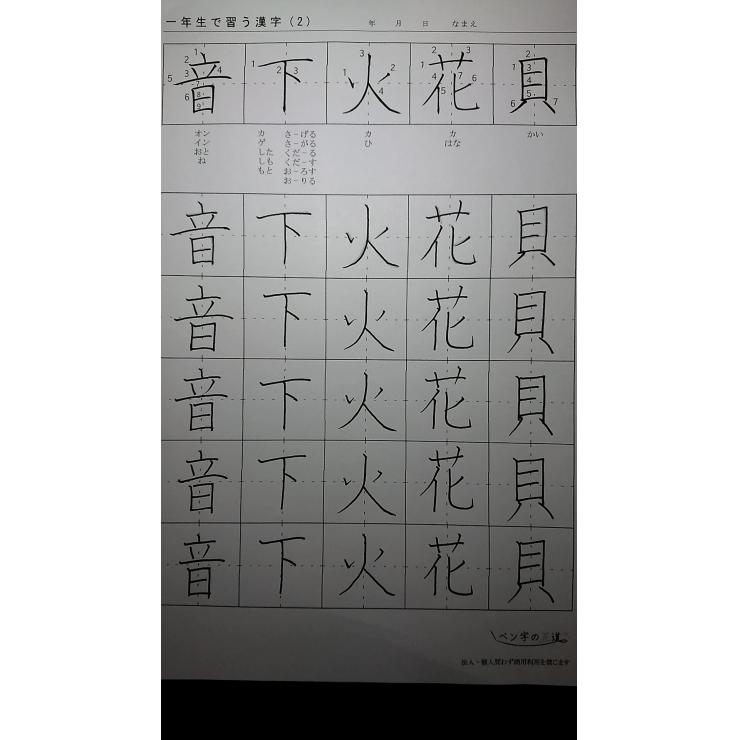 一年生で習う漢字(2) 年 月 日 なまえ
音 下 火 花 貝
オン カ さ-げる カ カ かい
イン ゲ さ-がる ひ はな
おと した くだ-る
ね しも くだ-す
もと お-ろす
お-りる
音 下 火 花 貝
音 下 火 花 貝
音 下 火 花 貝
音 下 火 花 貝
音 下 火 花 貝
ペン字の 道
法人・個人問わず商用利用を禁じます